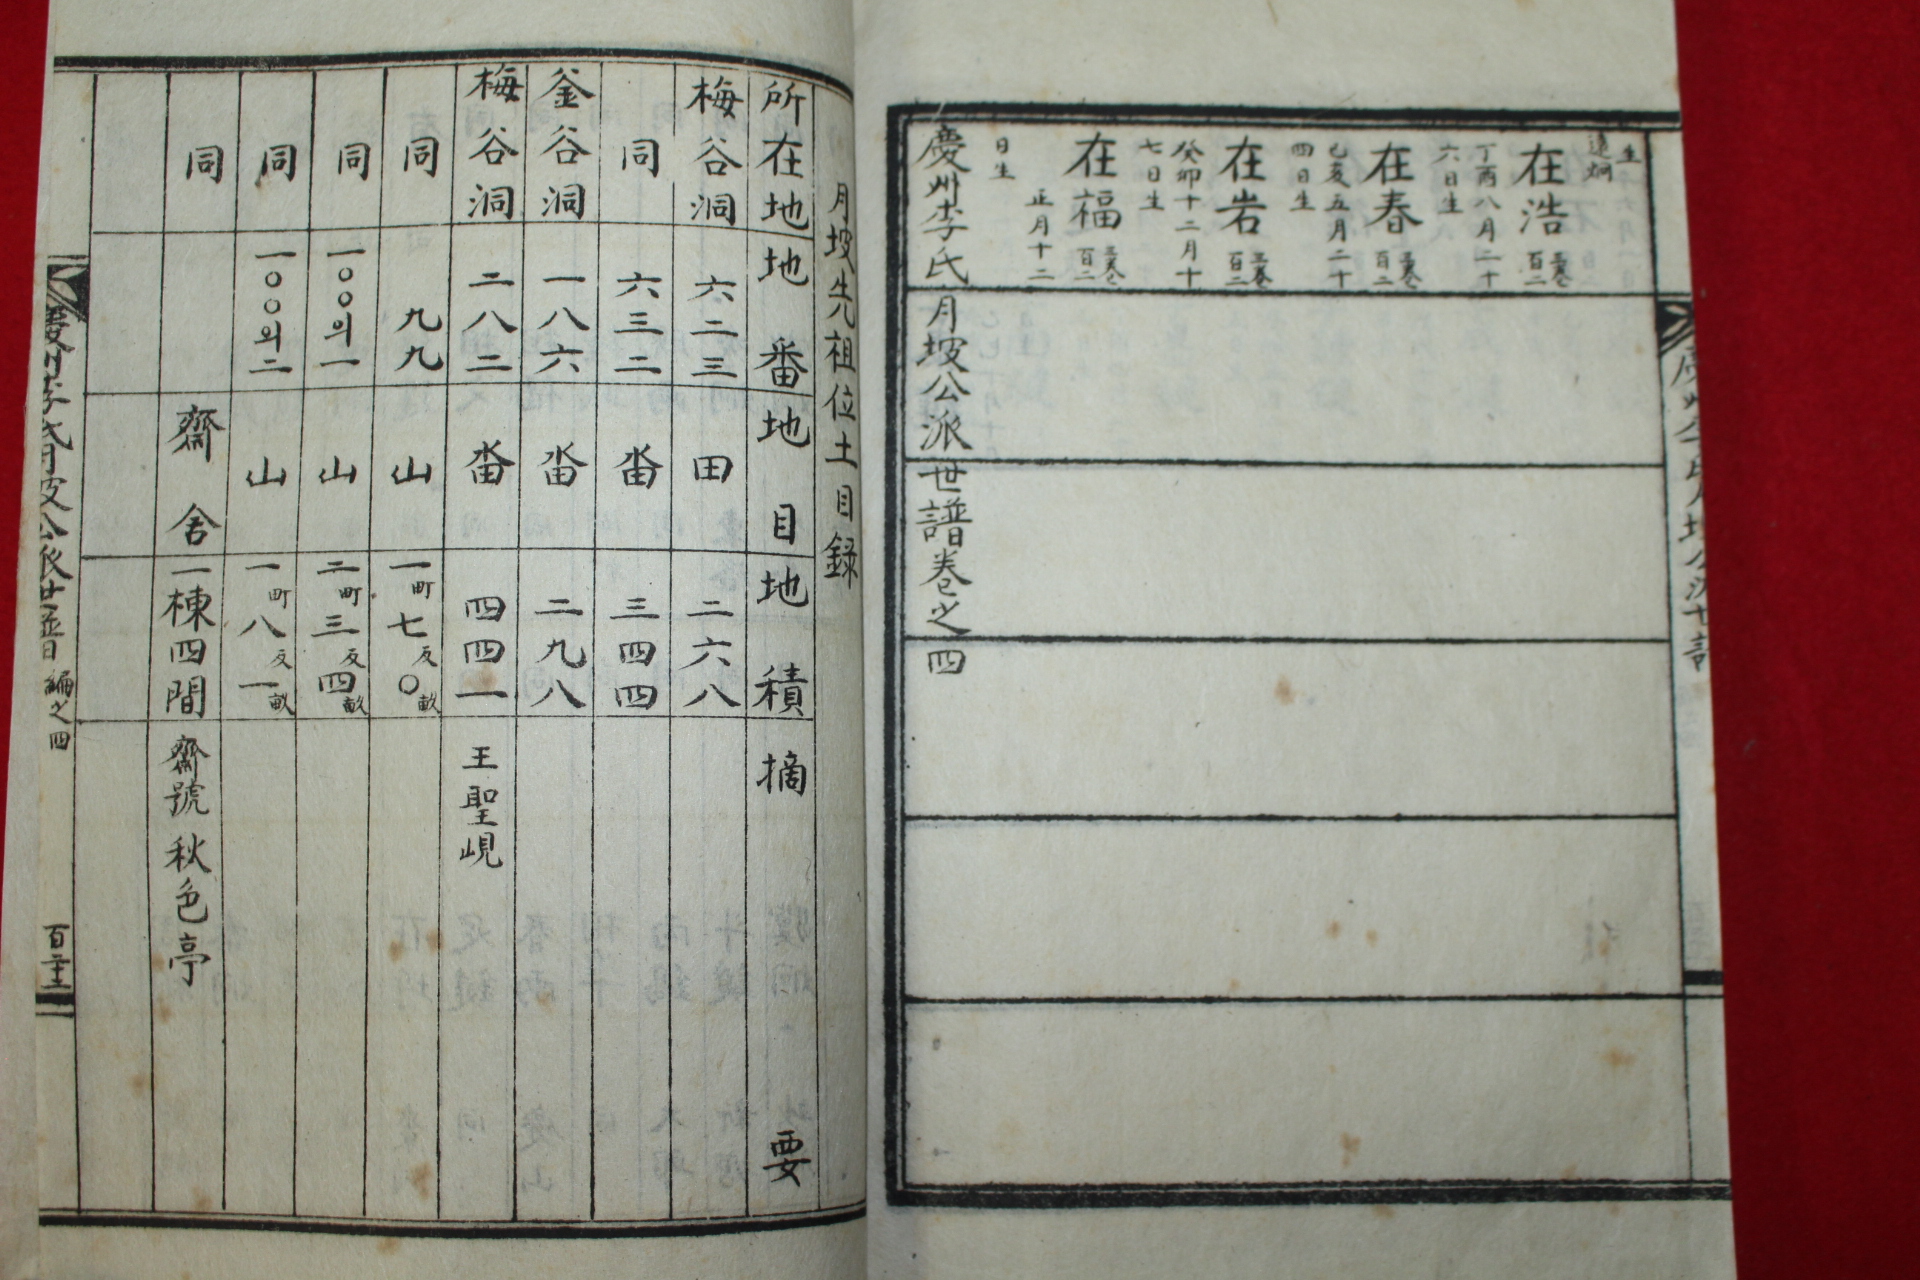 在浩
百二
丁酉八月二十
六日生
在春
百二
己亥五月二十
四日生
在岩
百二
癸卯十二月十
七日生
在福
百二
正月十二
日生
慶州李氏月坡公派世譜卷之四
月坡先祖位土目錄
所在地 地番 地目 地積 摘要
梅谷洞 六二三 田 二六八
同 六三二 畓 三四四
釜谷洞 一八六 畓 二九八
梅谷洞 二八二 畓 四四一 王聖峴
同 九九 山 一町七反〇畝
同 一〇〇의一 山 二町三反四畝
同 一〇〇의二 山 一町八反一畝
同 齋舍 一棟四間 齋號秋色亭
慶州李氏月坡公派世譜 編之四